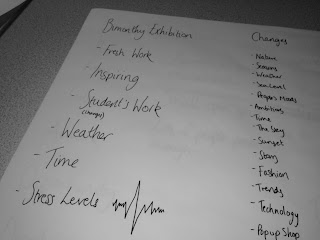 Bimonthly Exhibition
- Fresh Work
- Inspiring
- Student's Work
(change)
- Weather
- Time
- Stress Levels
Changes
- Nature
- Seasons
- Weather
- Sea Level
- People's Moods
- Ambitions
- Time
- The Day
- Sunset
- Stars
- Fashion
- Trends
- Technology
- Popup Shop